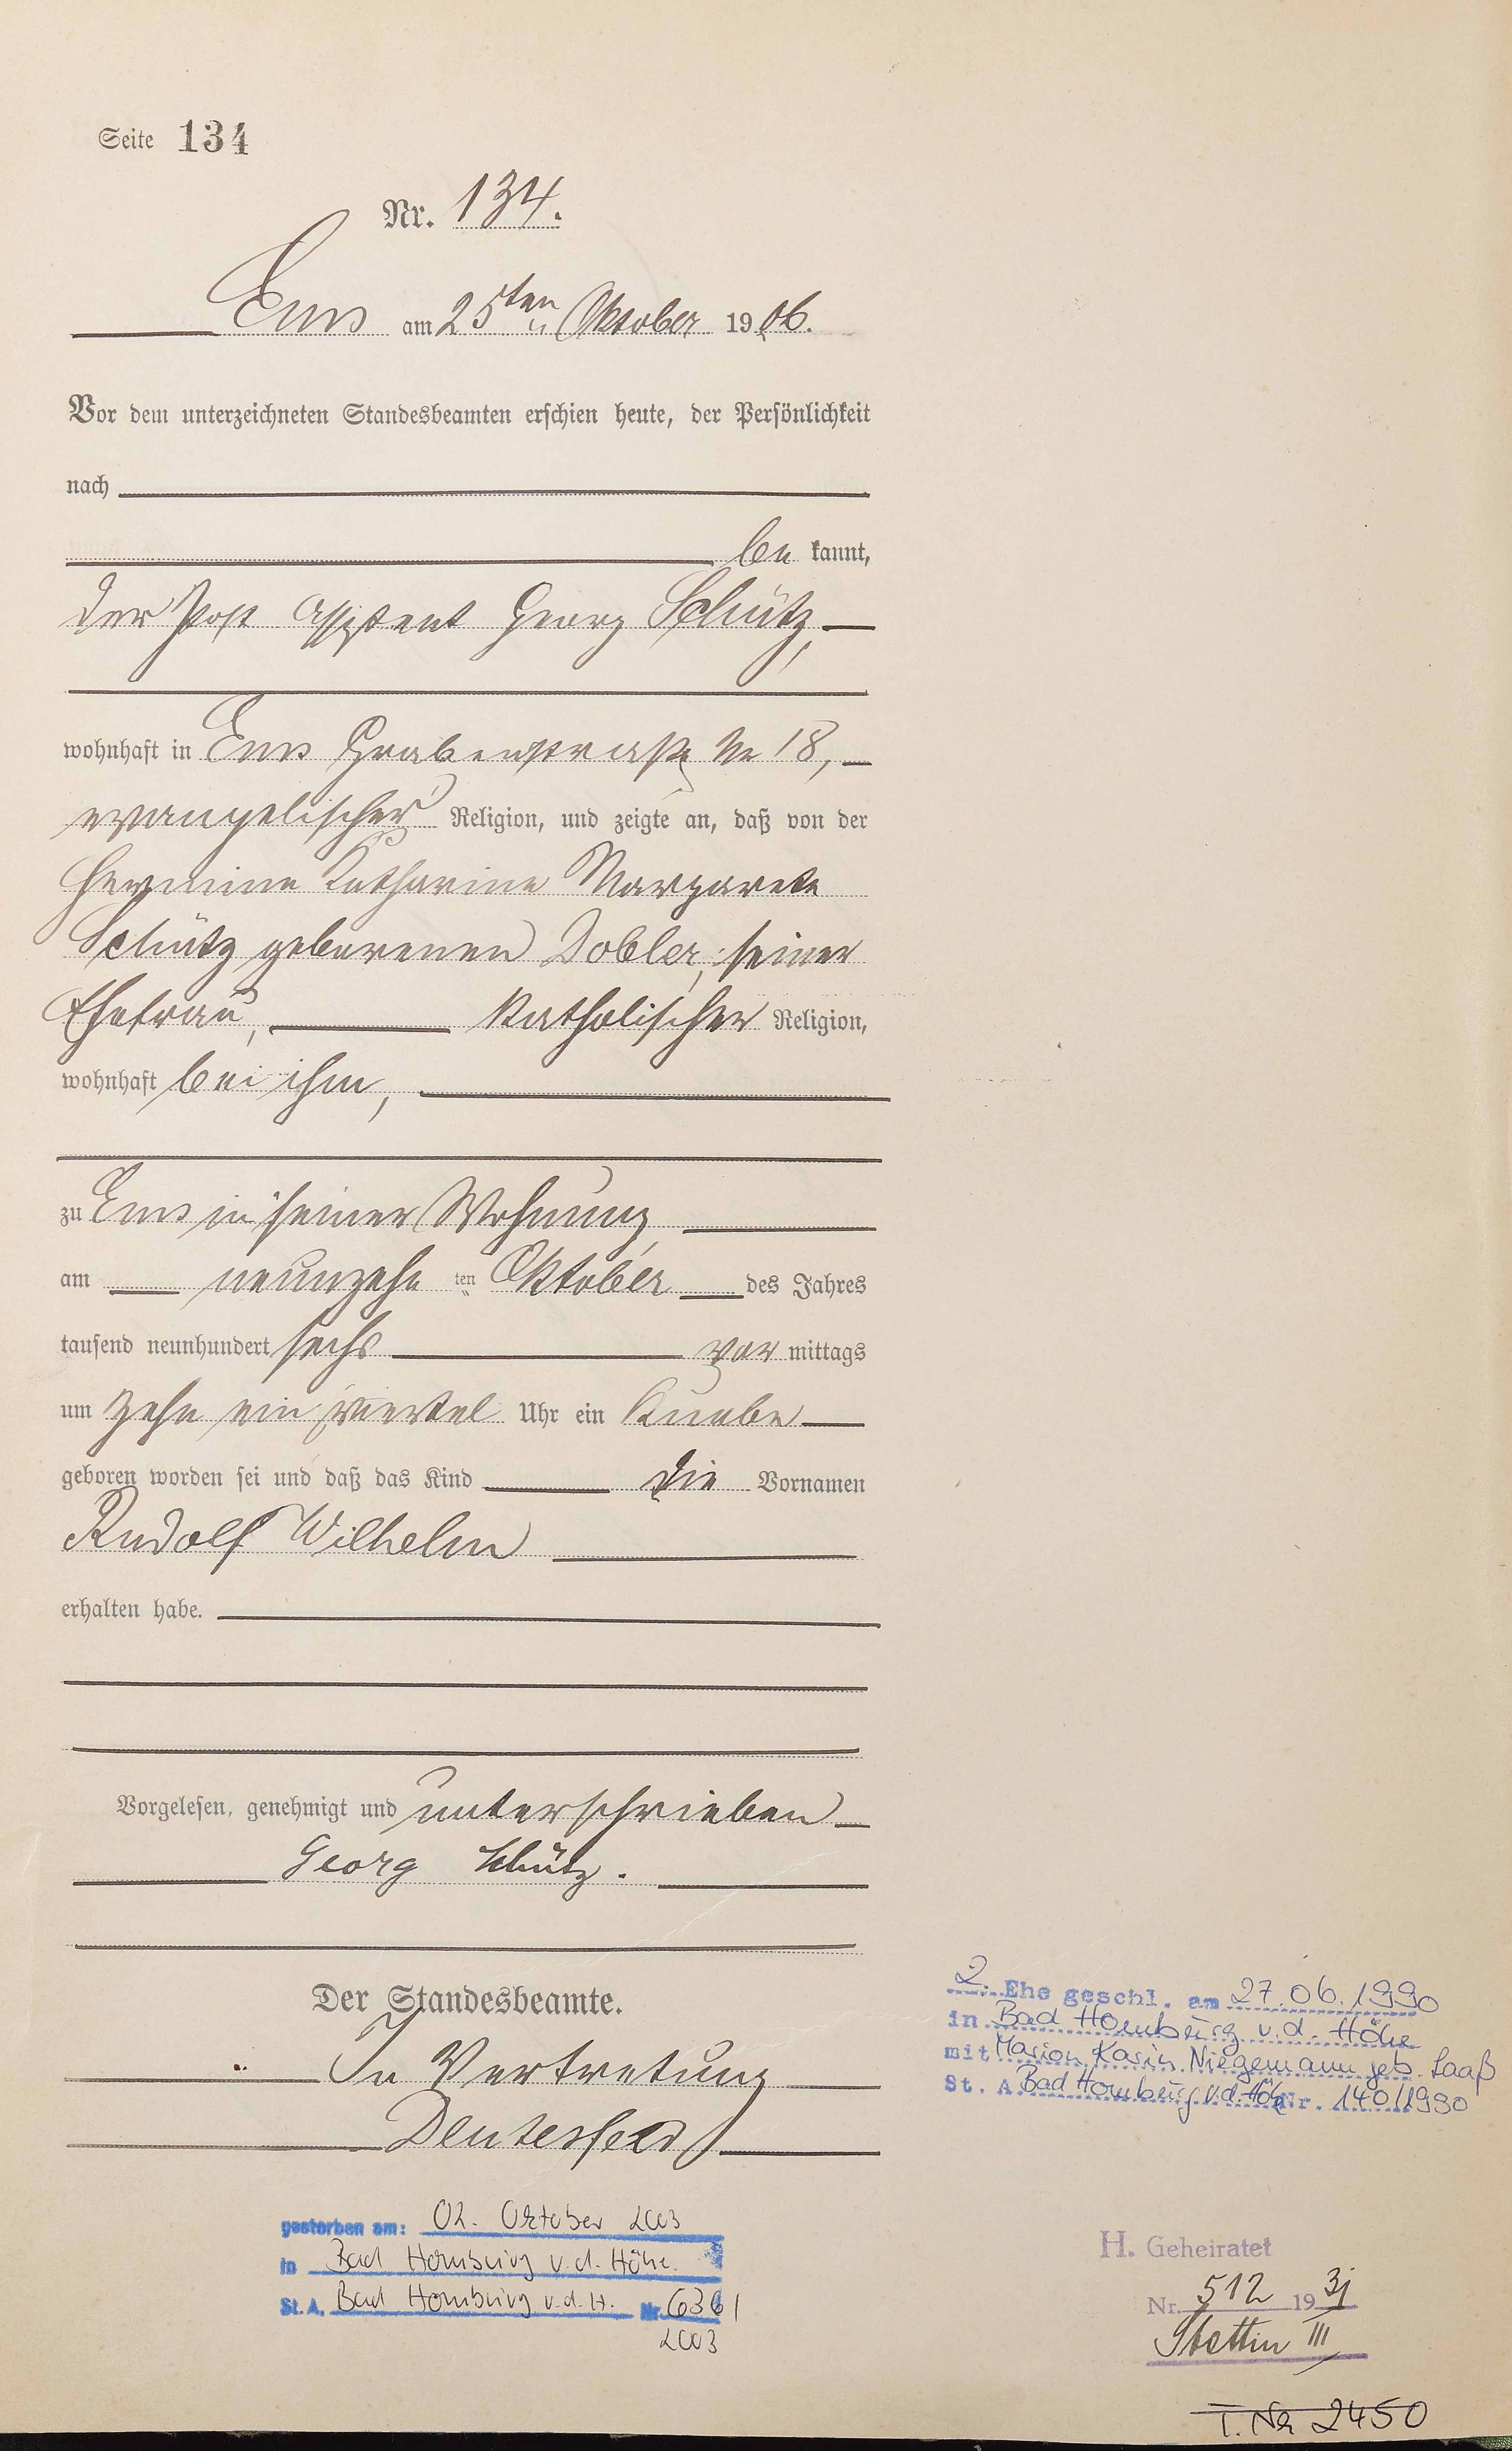 Seite 134
Nr. 134.
Ems am 25ten Oktober 1906.
Vor dem unterzeichneten Standesbeamten erschien heute, der Persönlichkeit
nach
be kannt,
der Post Assistent Georg Schütz,
wohnhaft in Ems Grabenstraße No 18,
evangelischer Religion, und zeigte an, daß von der
Hermine Katharine Margarete
Schütz geborenen Dobler, seiner
Ehefrau, katholischer Religion,
wohnhaft bei ihm,
zu Ems in seiner Wohnung,
am neunzehn ten Oktober des Jahres
tausend neunhundert sechs vor mittags
um zehn ein viertel Uhr ein Knabe
geboren worden sei und daß das Kind die Vornamen
Rudolf Wilhelm
erhalten habe.
Vorgelesen, genehmigt und unterschrieben
Georg Schütz.
Der Standesbeamte.
In Vertretung
gestorben am: 02. Oktober 2003
in Bad Homburg v.d. Höhe
St. A. Bad Homburg v.d.H. Nr. 636/
2003
2. Ehe geschl. am 27.06.1990
in Bad Homburg v.d. Höhe
mit Marion Karin Niegemann geb. Saaß
St. A. Bad Homburg v.d. Höhe Nr. 140/1990
H. Geheiratet
Nr. 512 1931
Stettin III
T. Nr 2450